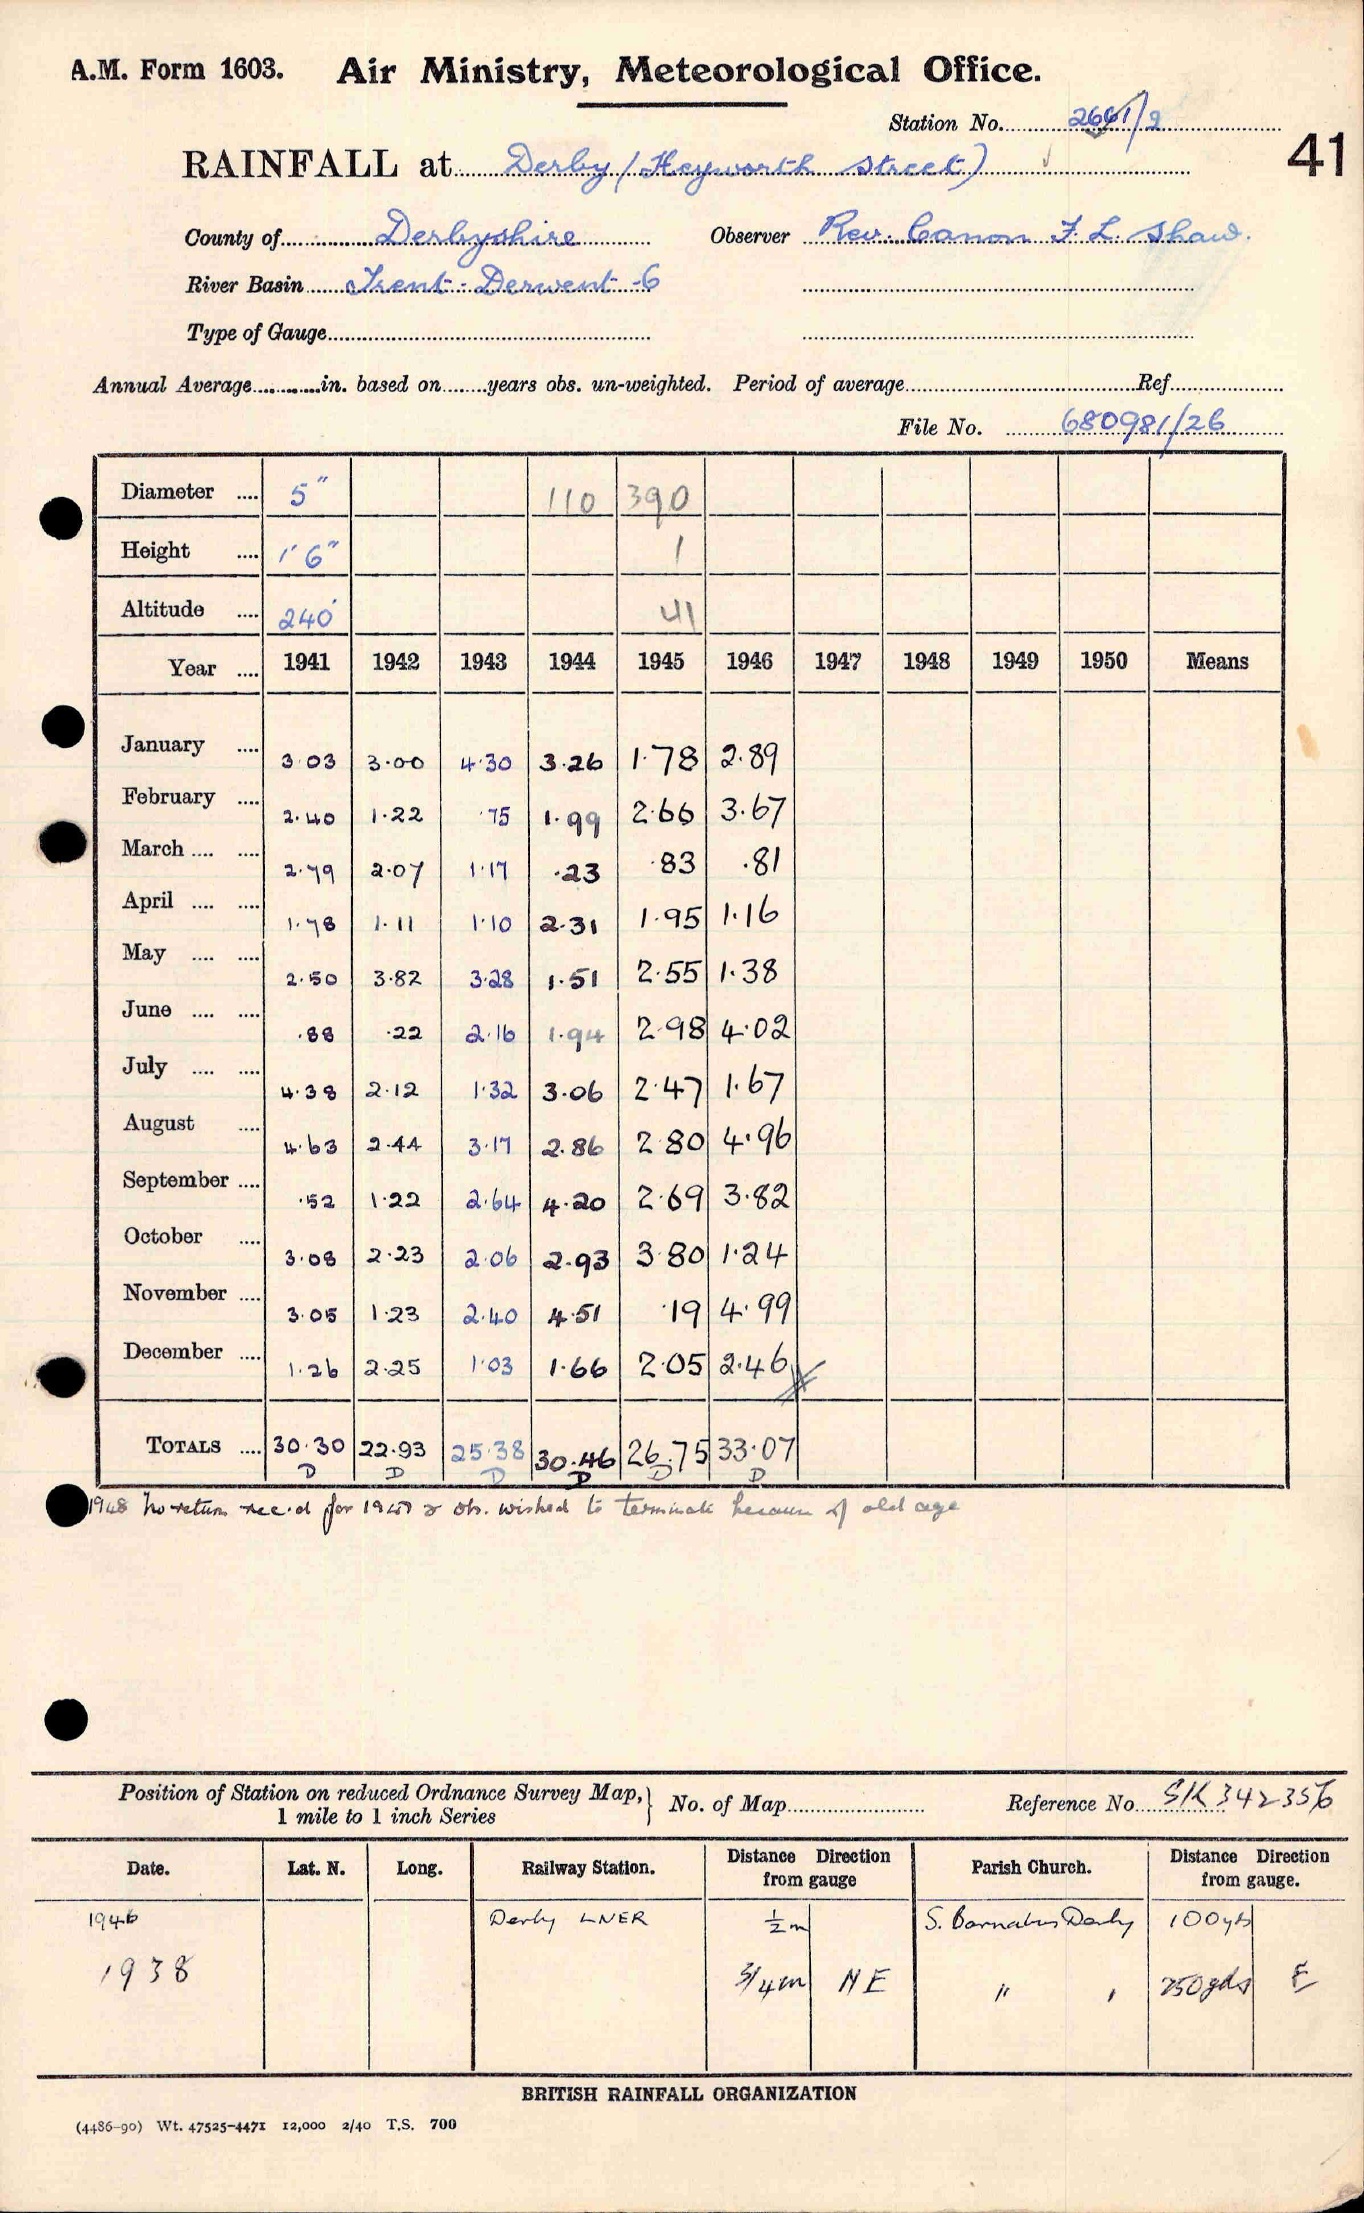 A.M. Form 1603. Air Ministry, Meteorological Office.
Station No. 2661/2
41
RAINFALL at Derby (Heyworth Street)
County of Derbyshire Observer Rev. Canon F. L. Shaw.
River Basin Trent - Derwent - 6
Type of Gauge
Annual Average in. based on years obs. un-weighted. Period of average Ref.
File No. 680981/26
Diameter .... 5" 110 390
Height .... 1' 6" 1
Altitude .... 240' 41
Year .... 1941 1942 1943 1944 1945 1946 1947 1948 1949 1950 Means
January .... 3.03 3.00 4.30 3.26 1.78 2.89
February .... 2.40 1.22 .75 1.99 2.66 3.67
March .... .... 2.79 2.07 1.17 .23 .83 .81
April .... .... 1.78 1.11 1.10 2.31 1.95 1.16
May .... .... 2.50 3.82 3.28 1.51 2.55 1.38
June .... .... .88 .22 2.16 1.94 2.98 4.02
July .... .... 4.38 2.12 1.32 3.06 2.47 1.67
August .... 4.63 2.44 3.17 2.86 2.80 4.96
September .... .52 1.22 2.64 4.20 2.69 3.82
October .... 3.08 2.23 2.06 2.93 3.80 1.24
November .... 3.05 1.23 2.40 4.51 .19 4.99
December .... 1.26 2.25 1.03 1.66 2.05 2.46
TOTALS .... 30.30 22.93 25.38 30.46 26.75 33.07
D D D D D D
1948 No return rec.d for 1947 & ob. wished to terminate because of old age
Position of Station on reduced Ordnance Survey Map, 1 mile to 1 inch Series } No. of Map Reference No. SK 342356
Date. Lat. N. Long. Railway Station. Distance Direction from gauge Parish Church. Distance Direction from gauge.
1946 Derby LNER ½ m S. Barnabas Derby 100 yds
1938 3/4 m NE " " 250 yds E
BRITISH RAINFALL ORGANIZATION
(4486-90) Wt. 47525-4471 12,000 2/40 T.S. 700